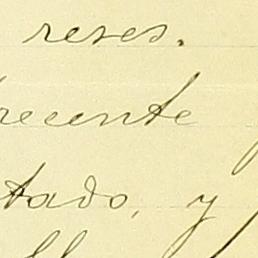 reses.
recente
tado, y